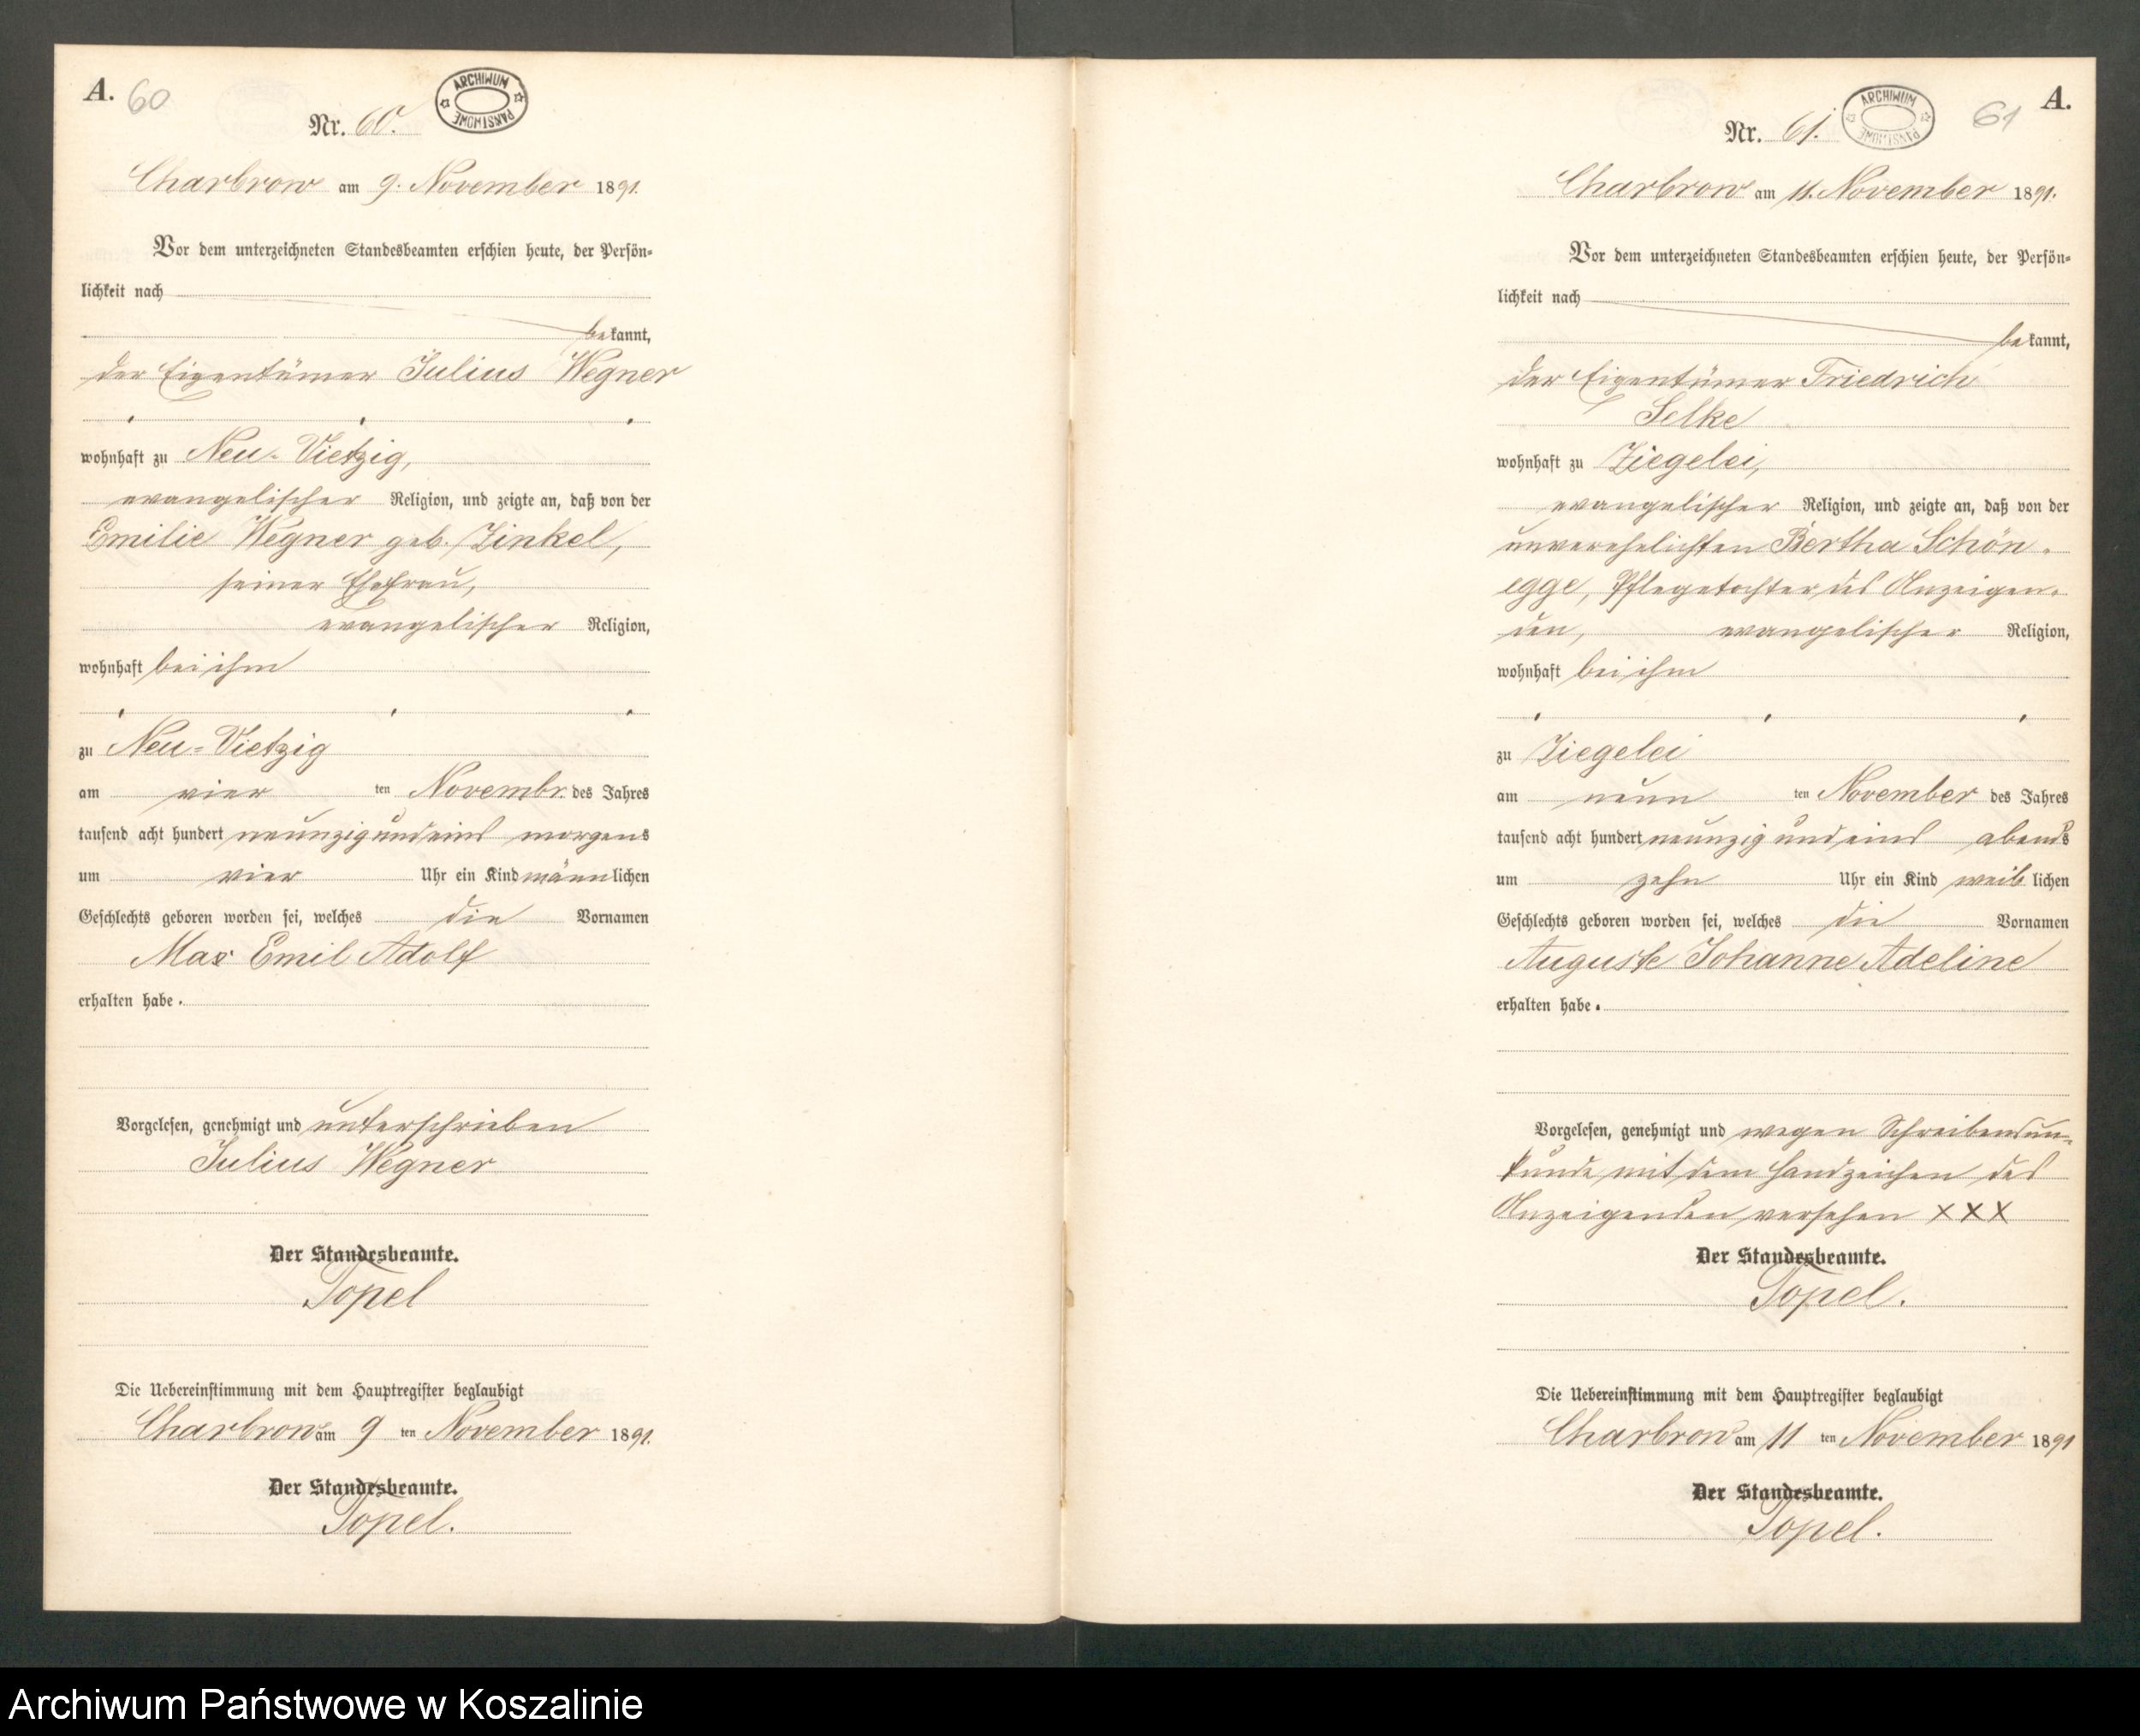 A. 60
ARCHIWUM PAŃSTWOWE
Nr. 60.
Charbrow am 9. November 1891.
Vor dem unterzeichneten Standesbeamten erschien heute, der Persön-
lichkeit nach
bekannt,
der Eigentümer Julius Wegner
wohnhaft zu Neu-Vietzig,
evangelischer Religion, und zeigte an, daß von der
Emilie Wegner geb. Zinkel,
seiner Ehefrau,
evangelischer Religion,
wohnhaft bei ihm
zu Neu-Vietzig
am vier ten Novembr. des Jahres
tausend acht hundert neunzig und eins morgens
um vier Uhr ein Kind männlichen
Geschlechts geboren worden sei, welches die Vornamen
Max Emil Adolf
erhalten habe.
Vorgelesen, genehmigt und unterschrieben
Julius Wegner
Der Standesbeamte.
Topel
Die Uebereinstimmung mit dem Hauptregister beglaubigt
Charbrow am 9 ten November 1891.
Der Standesbeamte.
Topel.
61 A.
ARCHIWUM PAŃSTWOWE
Nr. 61.
Charbrow am 11. November 1891.
Vor dem unterzeichneten Standesbeamten erschien heute, der Persön-
lichkeit nach
bekannt,
der Eigentümer Friedrich
Selke
wohnhaft zu Ziegelei,
evangelischer Religion, und zeigte an, daß von der
unverehelichten Bertha Schön-
egge, Pflegetochter des Anzeigen-
den, evangelischer Religion,
wohnhaft bei ihm
zu Ziegelei
am neun ten November des Jahres
tausend acht hundert neunzig und eins abends
um zehn Uhr ein Kind weiblichen
Geschlechts geboren worden sei, welches die Vornamen
Auguste Johanne Adeline
erhalten habe.
Vorgelesen, genehmigt und wegen Schreibensun-
kunde mit dem Handzeichen des
Anzeigenden versehen XXX
Der Standesbeamte.
Topel.
Die Uebereinstimmung mit dem Hauptregister beglaubigt
Charbrow am 11 ten November 1891
Der Standesbeamte.
Topel.
Archiwum Państwowe w Koszalinie